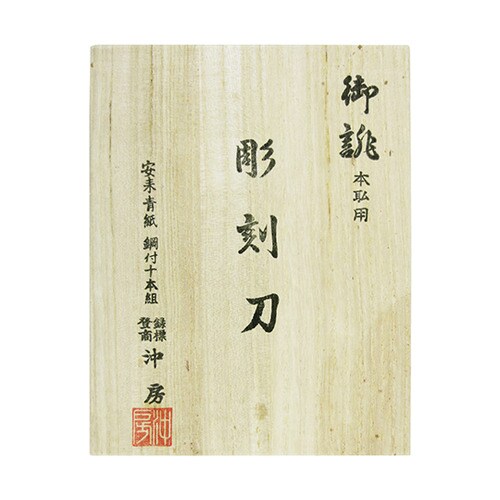 御誂 本职用
彫刻刀
安来青紙 鋼付十本組
登録商標 沖房
沖房